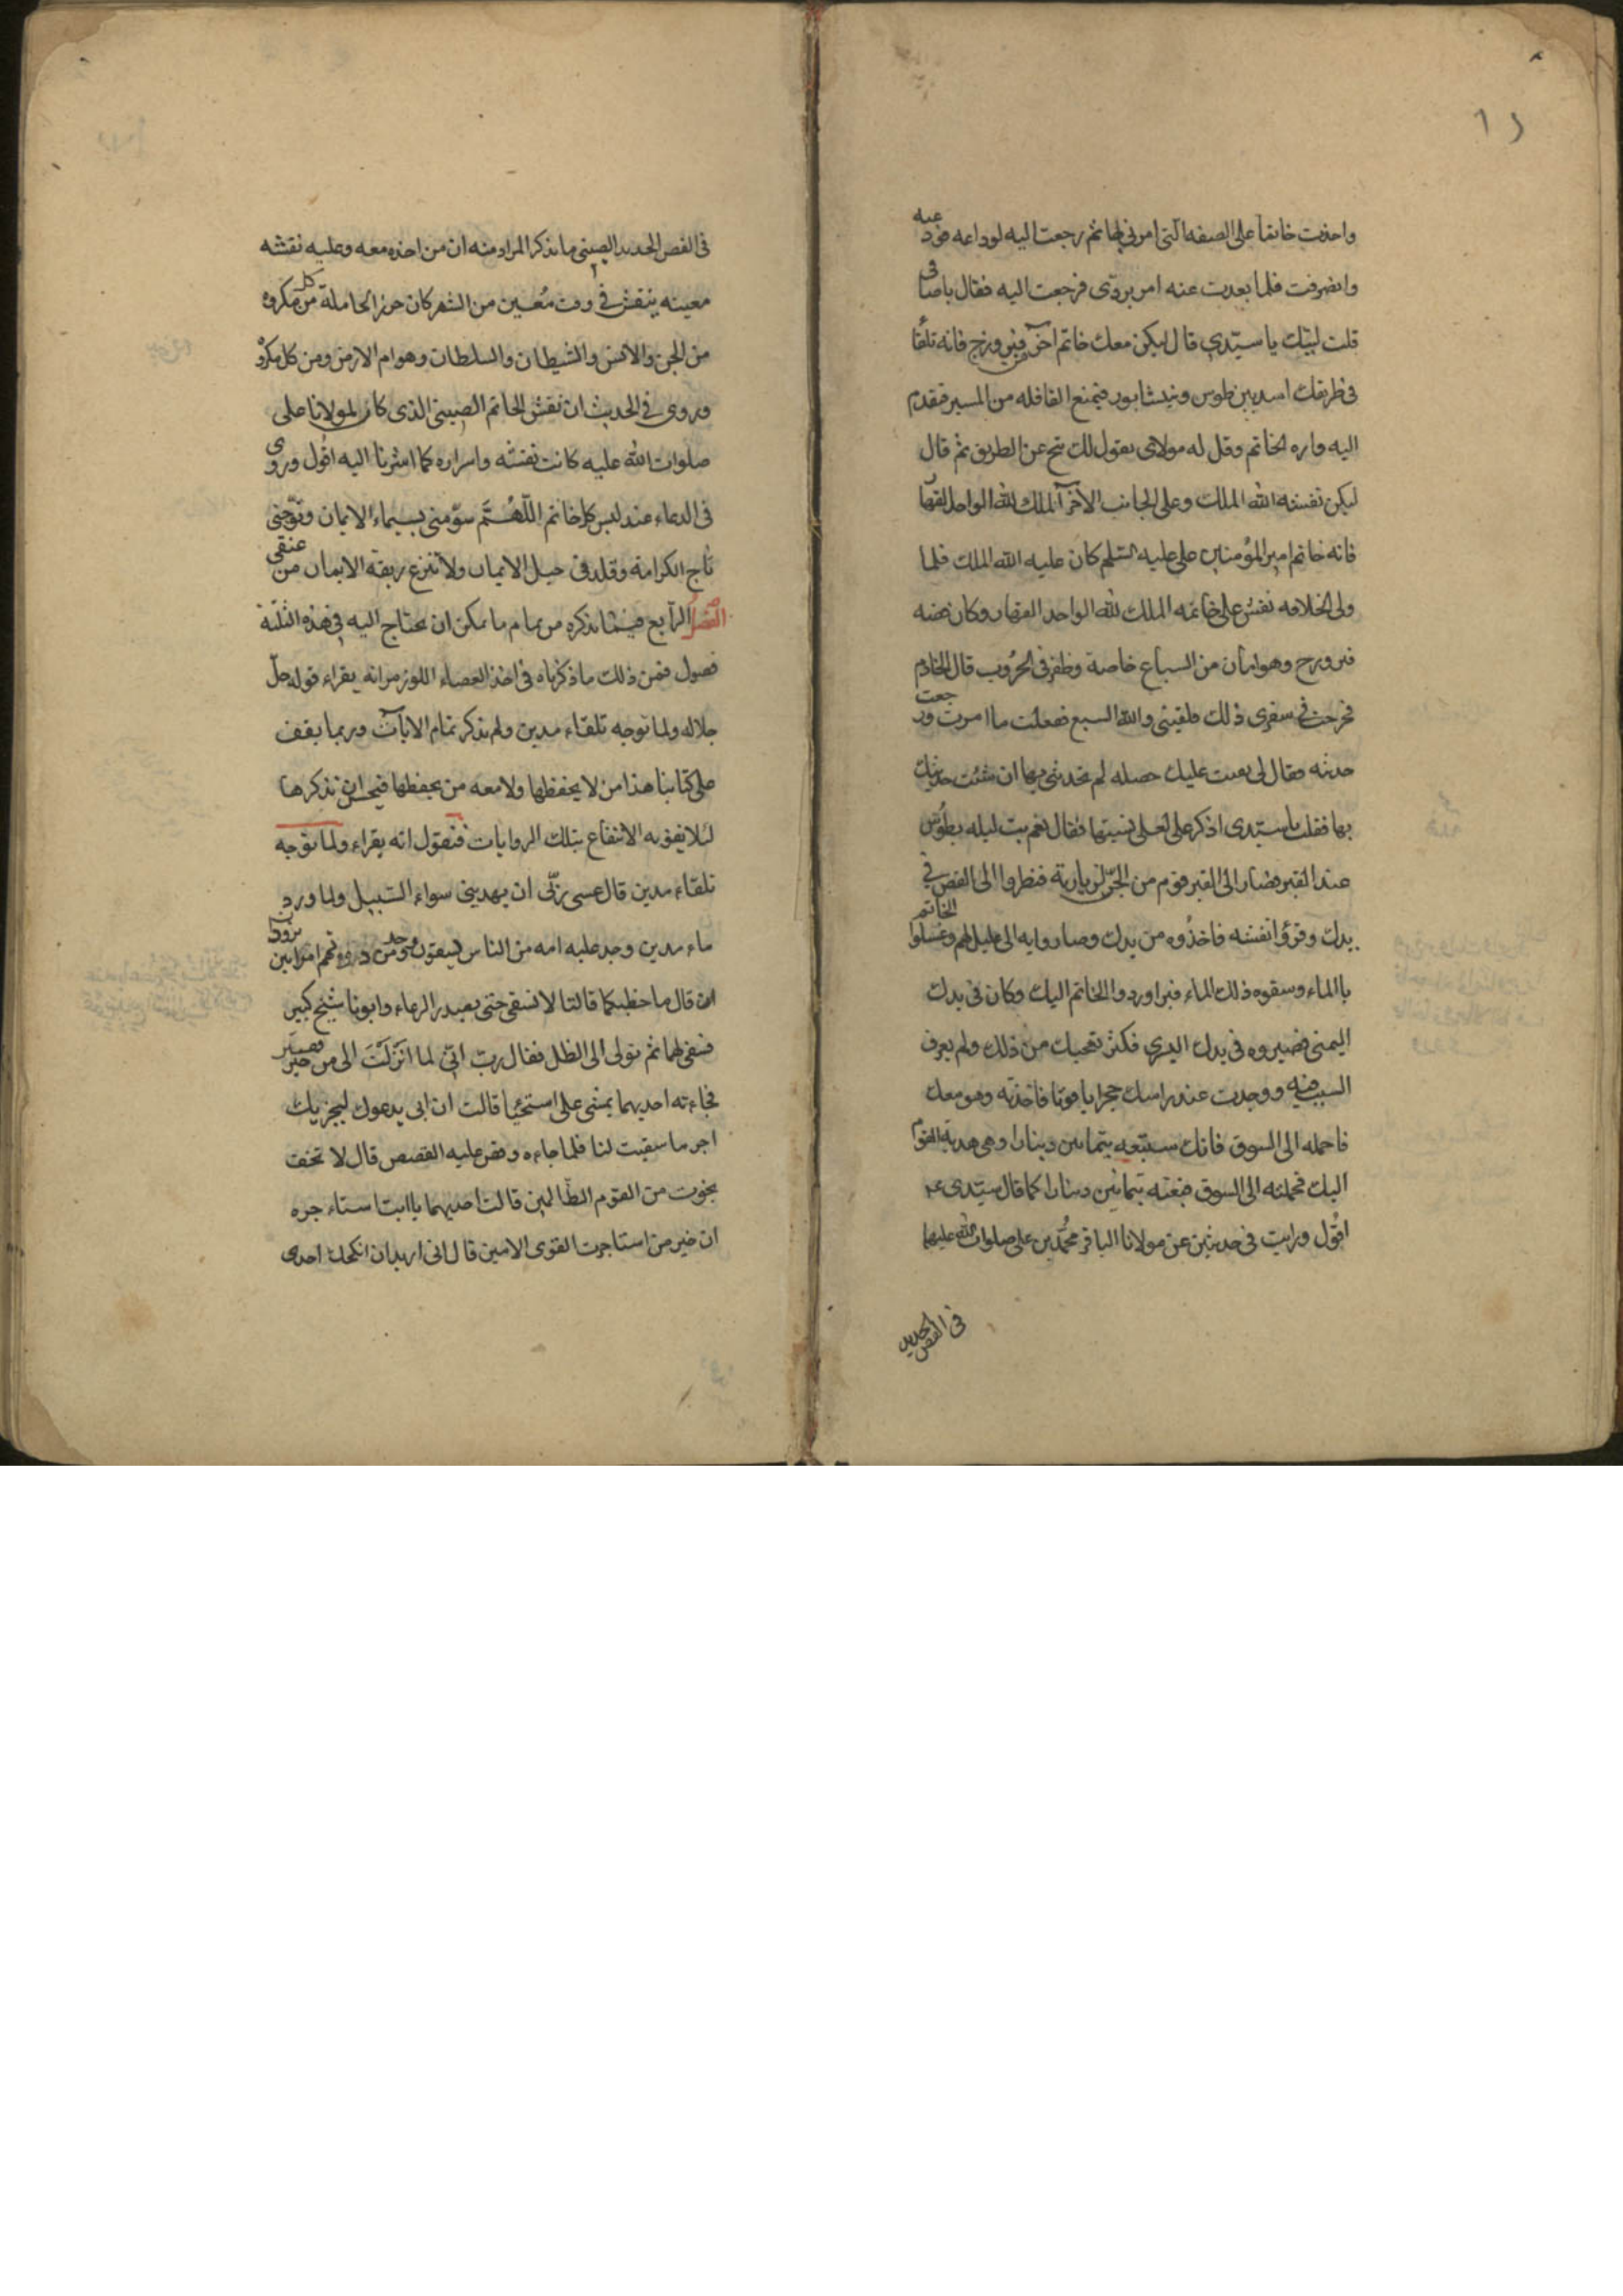 واخذت خاتما على الصفه التى امرنى بها ثم رجعت اليه لوداعه فودعته
وانصرفت فلما بعدت عنه امر بردّى فرجعت اليه فقال يا صافى
قلت لبيك يا سيّدى قال ليكن معك خاتم آخر فيروزج فانه تلقا
فى طريقك اسد بين طوس ونيشابور فيمنع القافله من المسير فتقدم
اليه واره الخاتم وقل له مولاى يقول لك تنح عن الطريق ثم قال
ليكن نقشه الله الملك وعلى الجانب الآخر الملك لله الواحد القهّا
فانه خاتم امير المؤمنين على عليه السّلم كان عليه الله الملك فلما
ولى الخلافه نقش على خاتمه الملك لله الواحد القهار وكان فصه
فيروزج وهو امان من السباع خاصة وظفر فى الحرُوب قال الخادم
فخرجت فى سفرى ذلك فلقينى والله السبع ففعلت ما امرت ورجعت
حدثته فقال لى بقيت عليك خصله لم تحدثنى بها ان شئت حدثتك
بها فقلت يا سيّدى اذكر على لعلى نسيتها فقال نعم بت ليله بطوس
عند القبر فصار الى القبر قوم من الجنّ لزيارته فنظروا الى الفص فى
يدك وقرؤا نقشه فاخذُوه من يدك وصاروا به الى عليل لهم وغسلوا الخاتم
بالماء وسقوه ذلك الماء فبرا وردوا الخاتم اليك وكان فى يدك
اليمنى فصيروه فى يدك اليسرى فكثر تعجبك من ذلك ولم يعرف
السبب فيه ووجدت عند راسك حجرا ياقوتا فاخذته وهو معك
فاحمله الى السوق فانك ستبيعه بثمانين دينارا وهى هدية القوم
اليك فحملته الى السوق فبعته بثمانين دينارا كما قال سيّدى ع
اقول ورايت فى حديثين عن مولانا الباقر محمّد بن على صلوات الله عليهما
فى الفص الحديد
فى الفص الحديد الصينى ما نذكر المراد منه ان من اخذه معه وعليه نقشه
معينه ينقش فى وقت مُعين من الشهر كان حرزا لحامله من كل مكروه
من الجن والانس والشيطان والسلطان وهوام الارض ومن كل مكرو
وروى فى الحديث ان نقش الخاتم الصينى الذى كان لمولانا على
صلوات الله عليه كانت نقشه واسراره كما اشرنا اليه اقول وروى
فى الدعاء عند لبس كل خاتم اللّهُمَّ سوّمنى بسيماء الايمان وتوّجنى
تاج الكرامة وقلدنى حبل الايمان ولا تنزع ربقة الايمان من عنقى
الفصل الرّابع فيما نذكره من تمام ما يمكن ان يحتاج اليه فى هذه الثلثة
فصول فمن ذلك ما ذكرناه فى اخذ العصاء اللوز مر انه يقراء قوله جلّ
جلاله ولما توجه تلقاء مدين ولم نذكر تمام الايات وربما يقف
على كتابنا هذا من لا يحفظها ولا معه من يحفظها فيحسن ان نذكرها
لئلا يفوته الانتفاع بتلك الروايات فنقول انه يقراء ولما توجه
تلقاء مدين قال عسى ربّى ان يهدينى سواء السّبيل ولما ورد
ماء مدين وجد عليه امه من الناس يسقون ووجد من دونهم امراتين تذودا
ان قال ما خطبكما قالتا لا نسقى حتى يصدر الرعاء وابونا شيخ كبير
فسقى لهما ثم تولى الى الظل فقال ربّ انّى لما انزَلْتَ الى من خير فقير
فجاءته احديهما يمشى على استحيا قالت ان ابى يدعوك ليجزيك
اجر ما سقيت لنا فلما جاءه وقص عليه القصص قال لا تخف
نجوت من القوم الظّالمين قالت احديهما يا ابتا ستاءجره
ان خير من استاجرت القوى الامين قال انى اريد ان انكحك احدى